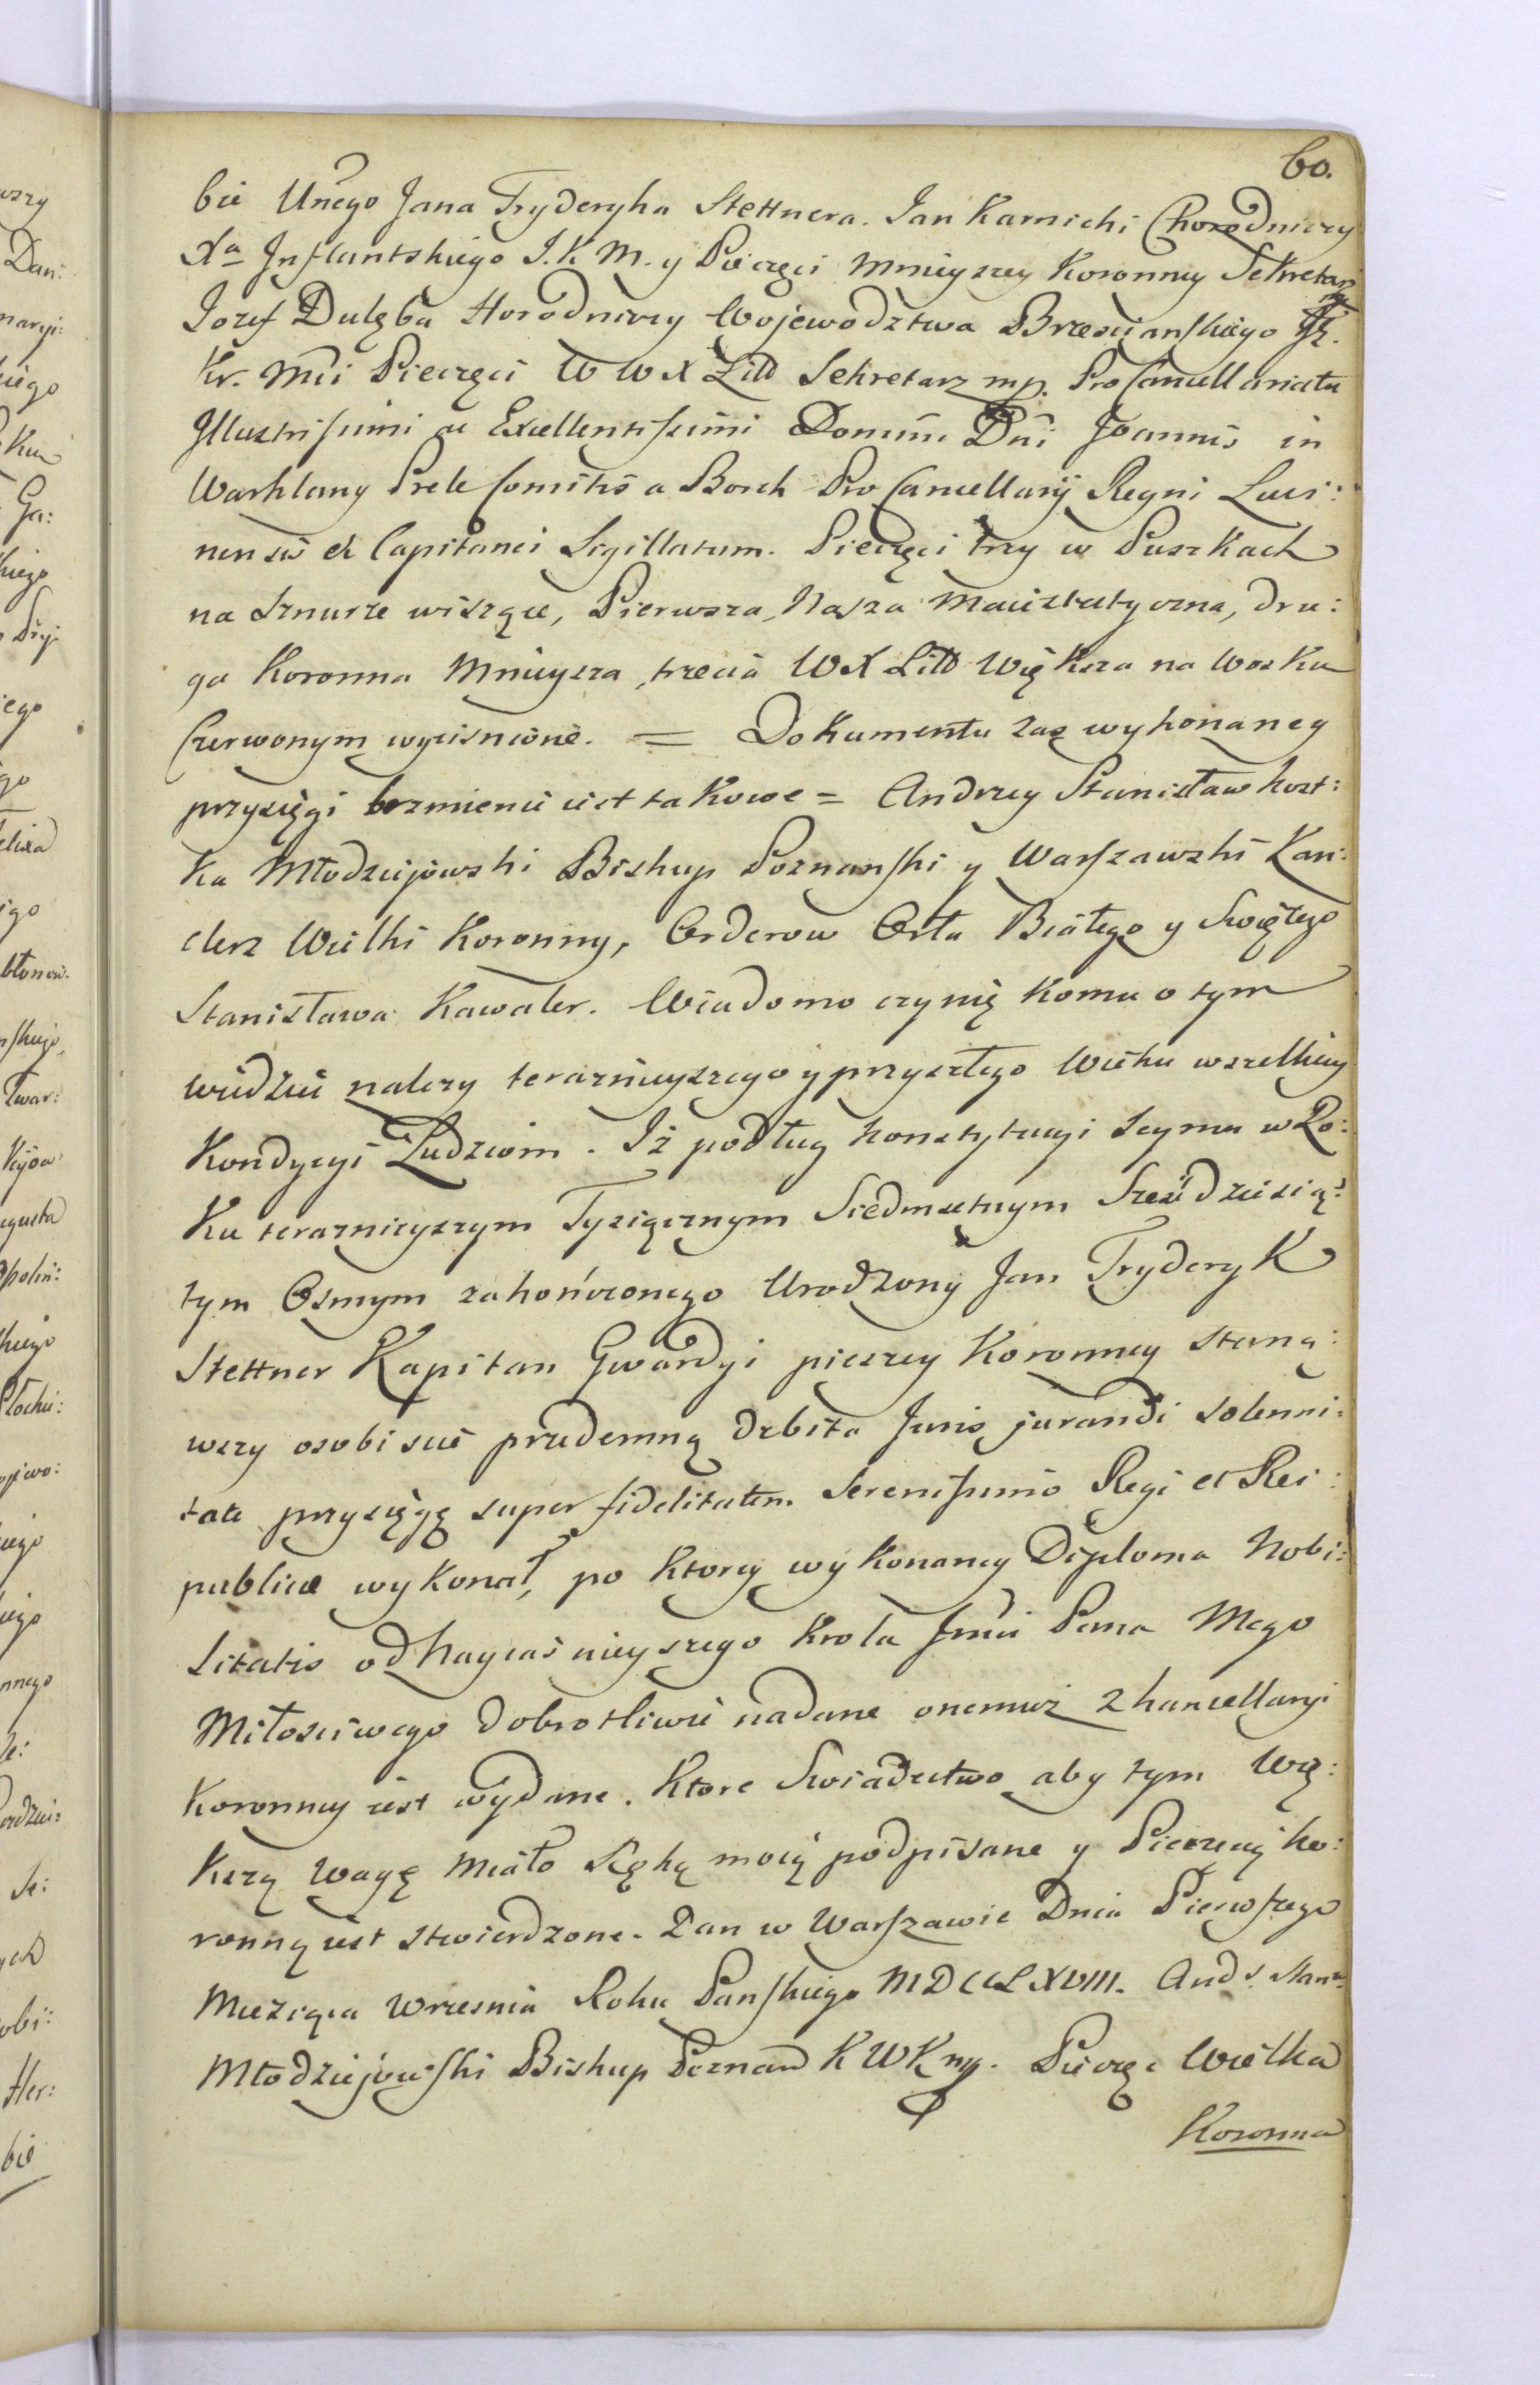 60.
bie Unego Jana Fryderyka Stettnera. Jan Karnicki Chorodniczy
Xa Inflantskiego J. K. M. y Pieczęci Mnieyszey Koronney Sekretarz
Jozef Dulęba Horodniczy Wojewodztwa Brzescianskiego
Kr. Mci Pieczęci W W X Litt Sekretarz mp. Pro Cancellariatu
Illustrissimi ac Excellentissimi Domini Dni Joannis in
Warklany Prele Comitis a Borch Pro Cancellarij Regni Luci:
nensis et Capitanei Sigillatum. Pieczęci trzy w Puszkach
na Sznurze wiszące, Pierwsza, Nasza Maiestatyczna, dru:
ga Koronna Mnieysza, trzecia W X Litt Większa na Wosku
Czerwonym wyciśnione. = Dokumentu zaś wykonaney
przysięgi brzmienie iest takowe = Andrzey Stanisław Kost:
ka Młodziejowski Biskup Poznanski y Warszawski Kan:
clerz Wielki Koronny, Orderow Orła Białego y Swiętego
Stanisława Kawaler. Wiadomo czynię komu o tym
wiedzieć nalezy terazнieyszego y przyszłego Wieku wszelkiey
Kondycyi Ludziom. Iż podług konstytucyi Seymu w Ro:
ku teraznieyszym Tysiącznym Siedmsetnym Sześdziesią:
tym Osmym zakończonego Urodzony Jan Fryderyk
Stettner Kapitan Gwardyi pieszey Koronney staną:
wszy osobiscie przedemną debita Juris jurandi solenni:
tate przysięgę super fidelitatem Serenissimo Regi et Rei:
publicae wykonał, po ktorey wykonaney Diploma Nobi:
litatis od Nayiasnieyszego Krola Jmci Pana Mego
Miłosciwego dobrotliwie nadane onemuż z kancellaryi
Koronney iest wydane. Ktore Swiadectwo aby tym Wię:
kszą wagę miało Ręką moią podpisane y Pieczecią ko:
ronną iest stwierdzone. Dan w Warszawie Dnia Pierwszego
Miesiąca Wrzesnia Roku Panskiego MDCCLXVIII. And. Stan.
Młodziejowski Biskup Poznan K W K mp. Pieczęć Wielka
Koronna